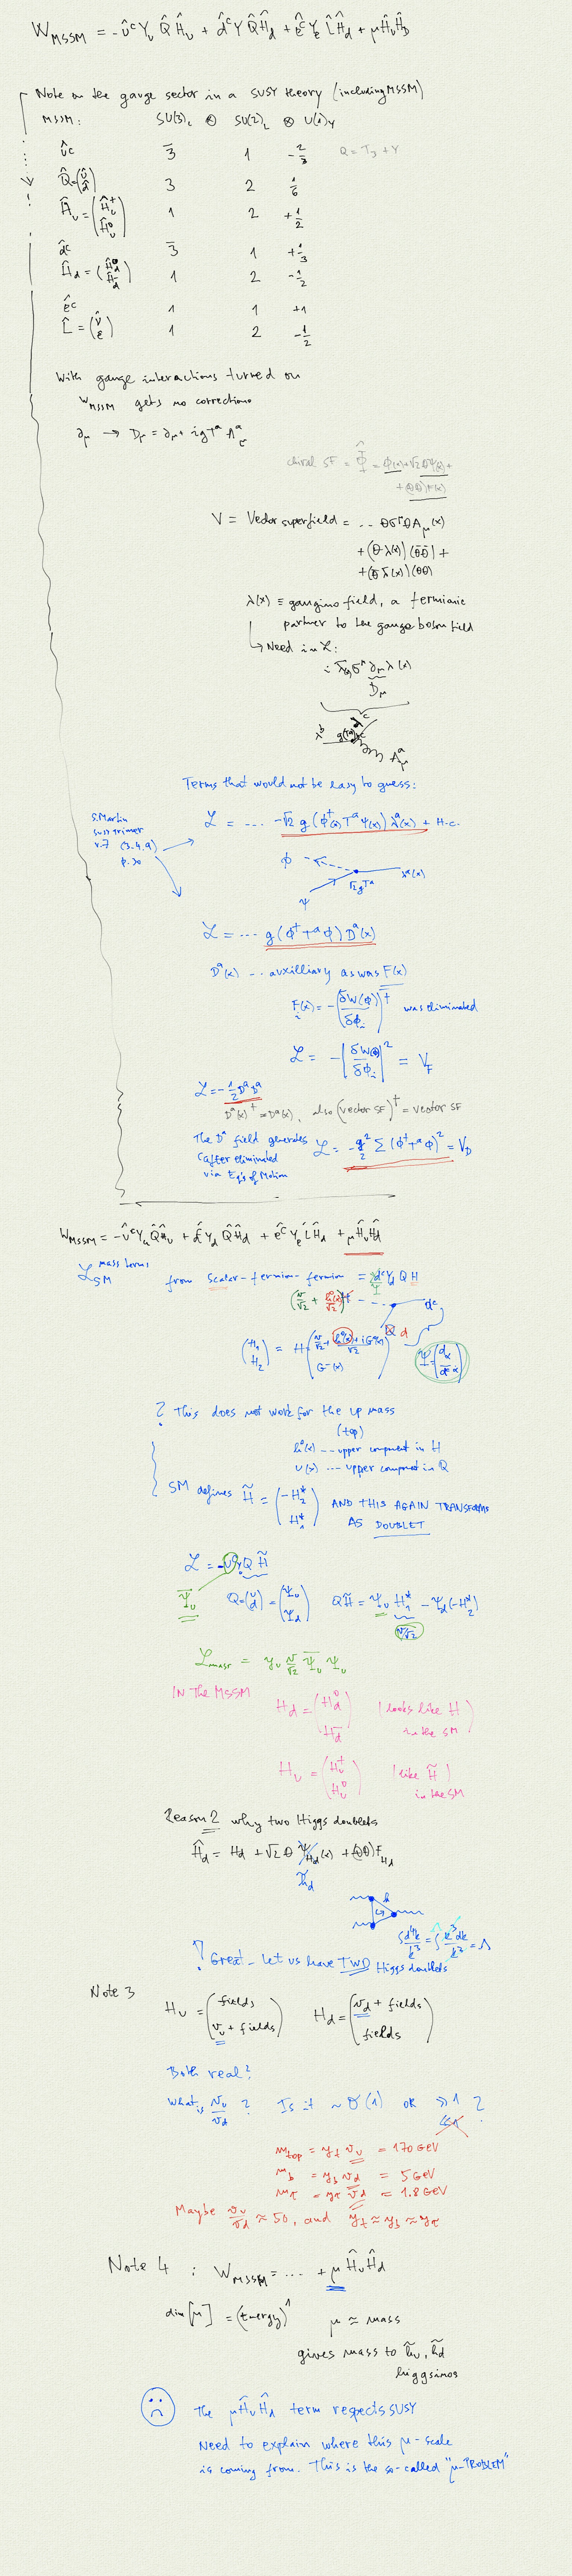 W_MSSM = -û^c Y_u Q̂ Ĥ_u + d̂^c Y Q̂ Ĥ_d + ê^c Y_e L̂ Ĥ_d + μ Ĥ_u Ĥ_D
Note on the gauge sector in a SUSY theory (including MSSM)
MSSM: SU(3)_c ⊗ SU(2)_L ⊗ U(1)_Y
û^c 3̄ 1 -2/3 Q = T_3 + Y
Q̂ = (û d̂) 3 2 1/6
Ĥ_u = (Ĥ_u^+ Ĥ_u^0) 1 2 +1/2
d̂^c 3̄ 1 +1/3
Ĥ_d = (Ĥ_d^0 Ĥ_d^-) 1 2 -1/2
ê^c 1 1 +1
L̂ = (ν̂ ê) 1 2 -1/2
With gauge interactions turned on
W_MSSM gets no corrections
∂_μ → D_μ = ∂_μ + igT^a A^a_μ
chiral SF = Φ̂ = φ(x) + √2 θψ(x) +
+ (θθ) F(x)
V = Vector superfield = ... θσ^μθ̄ A_μ(x)
+ (θ λ(x)) (θ̄θ̄) +
+ (θ̄ λ̄(x)) (θθ)
λ(x) ≡ gaugino field, a fermionic
partner to the gauge boson field
↳ Need in ℒ:
i λ̄ σ̄^μ ∂_μ λ(x)
D_μ
λ^b g(T^a) λ^c A^a_μ
Terms that would not be easy to guess:
S. Martin
SUSY primer
v.7 (3.4.9)
p. 30
ℒ = ... -√2 g (φ^†(x) T^a ψ(x)) λ^a(x) + H.c.
φ
λ^a(x)
ψ √2 g T^a
ℒ = ... g (φ^† T^a φ) D^a(x)
D^a(x) ... auxilliary as was F(x)
F_i(x) = -(δW(φ)/δφ_i)^† was eliminated
ℒ = -|δW(φ)/δφ_i|^2 = V_F
ℒ = -1/2 D^a D^a
D^a(x)^† = D^a(x), also (vector SF)^† = vector SF
The D^a field generates
(after eliminated
via Eq's of Motion
ℒ = -g^2/2 Σ (φ^† T^a φ)^2 = V_D
W_MSSM = -û^c Y_u Q̂ Ĥ_u + d̂^c Y_d Q̂ Ĥ_d + ê^c Y_e L̂ Ĥ_d + μ Ĥ_u Ĥ_d
ℒ_SM^mass terms from scalar-fermion-fermion = d^c Y_d Q H
(v/√2 + h^0(x)/√2) d^c
Q d
(H_1 H_2) = H (v/√2 + h^0(x) + iG^0(x)/√2 G^-(x)) Ψ = (d_α d̄^c α̇)
? This does not work for the up mass
(top)
h^0(x) --- upper component in H
u(x) --- upper component in Q
SM defines H̃ = (-H_2^* H_1^*) AND THIS AGAIN TRANSFORMS
AS DOUBLET
ℒ = -u^c y_u Q H̃
Ψ̄_u Q = (u d) = (Ψ_u Ψ_d) Q H̃ = Ψ_u H_1^* - Ψ_d (-H_2^*)
v/√2
ℒ_mass = y_u v/√2 Ψ̄_u Ψ_u
IN THE MSSM H_d = (H_d^0 H_d^-) (looks like H
in the SM)
H_u = (H_u^+ H_u^0) (like H̃)
in the SM
Reason 2 why two Higgs doublets
Ĥ_d = H_d + √2 θ Ψ_{H_d}(x) + (θθ) F_{H_d}
h̃_d
k
∫ d^4k/k^3 = ∫^Λ k^3 dk/k^3 = Λ
! Great - Let us have TWO Higgs doublets
Note 3 H_u = (fields v_u + fields) H_d = (v_d + fields fields)
Both real?
What is v_u/v_d ? Is it ~ O(1) OR ≫1 ?
≪1
m_top = y_t v_u = 170 GeV
m_b = y_b v_d = 5 GeV
m_τ = y_τ v_d = 1.8 GeV
Maybe v_u/v_d ≈ 50, and y_t ≈ y_b ≈ y_τ
Note 4 : W_MSSM = ... + μ Ĥ_u Ĥ_d
dim[μ] = (Energy)^1 μ ≈ mass
gives mass to h̃_u, h̃_d
higgsinos
The μ Ĥ_u Ĥ_d term respects SUSY
Need to explain where this μ-scale
is coming from. This is the so-called "μ-PROBLEM"